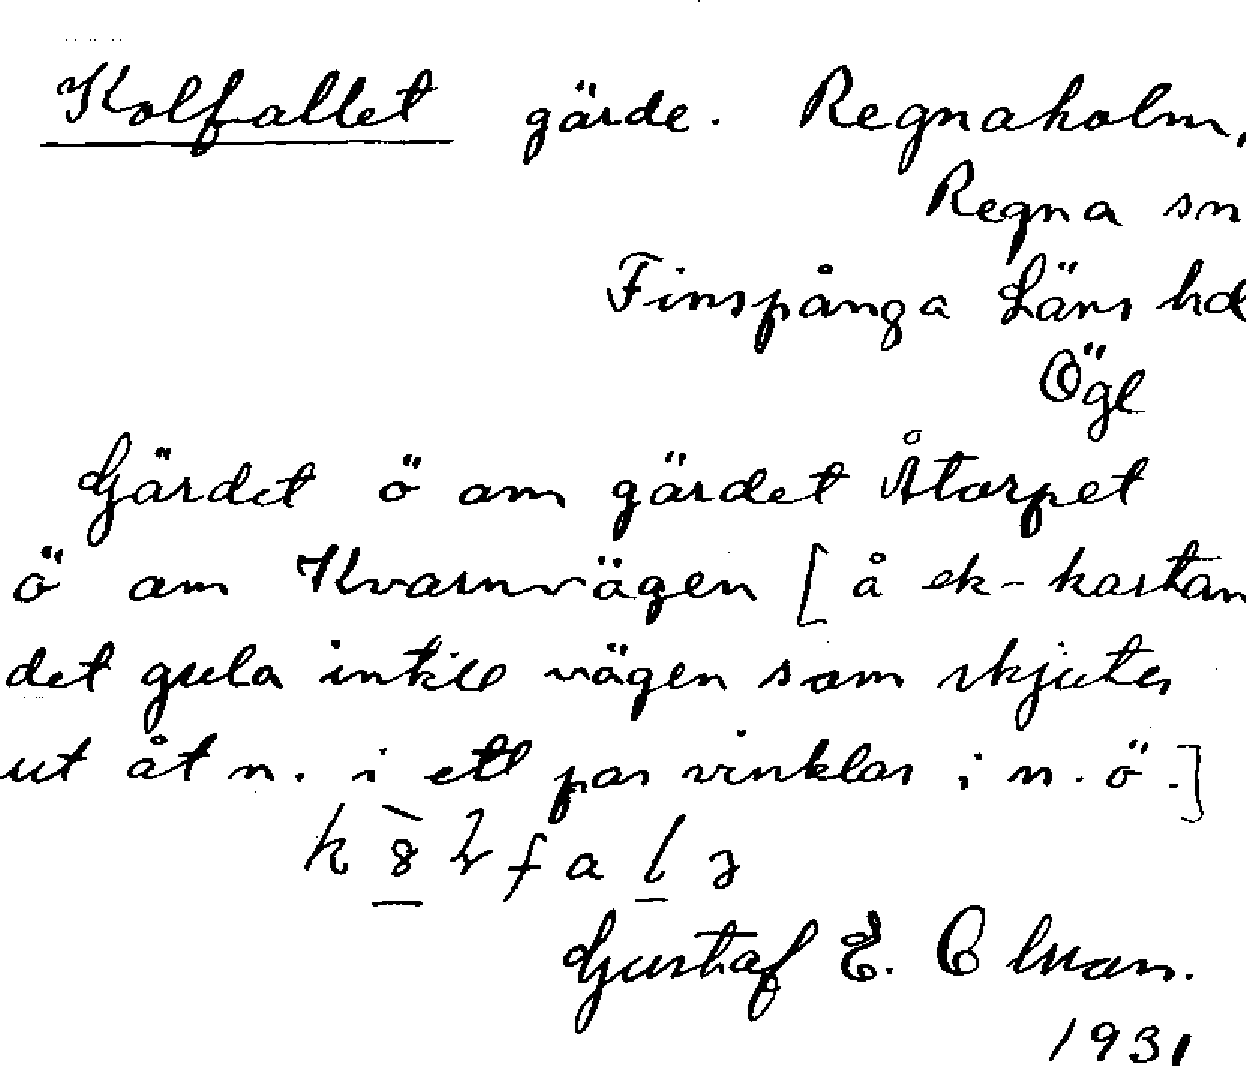 Kolfallet gärde. Regnaholm,
Regna sn
Finspånga Läns hd
Ögl
Gärdet ö om gärdet Åtorpet
ö om Kvarnvägen [å ek-kartan
det gula intill vägen som skjuter
ut åt n. i ett par vinklar i n.ö.]
Gustaf E. Olman.
1931